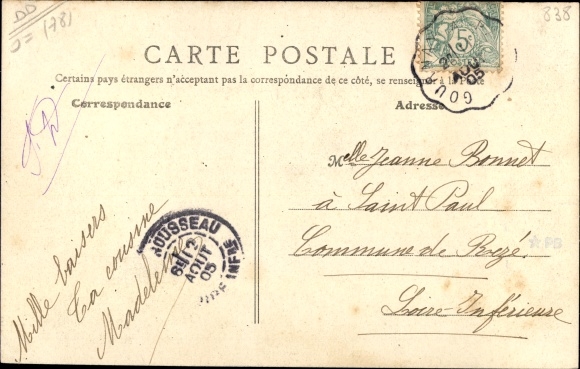 DD
1781
838
CARTE POSTALE
Certains pays étrangers n'acceptant pas la correspondance de ce côté, se renseigner à la Poste
Correspondance
Adresse
5c
AOU
05
GOU
Melle Jeanne Bonnet
à Saint Paul
Commune de Rezé
Loire-Inférieure
PB
Mille baisers
Ta cousine
Madeleine
ROUSSEAU
12
AOUT
05
INFRE